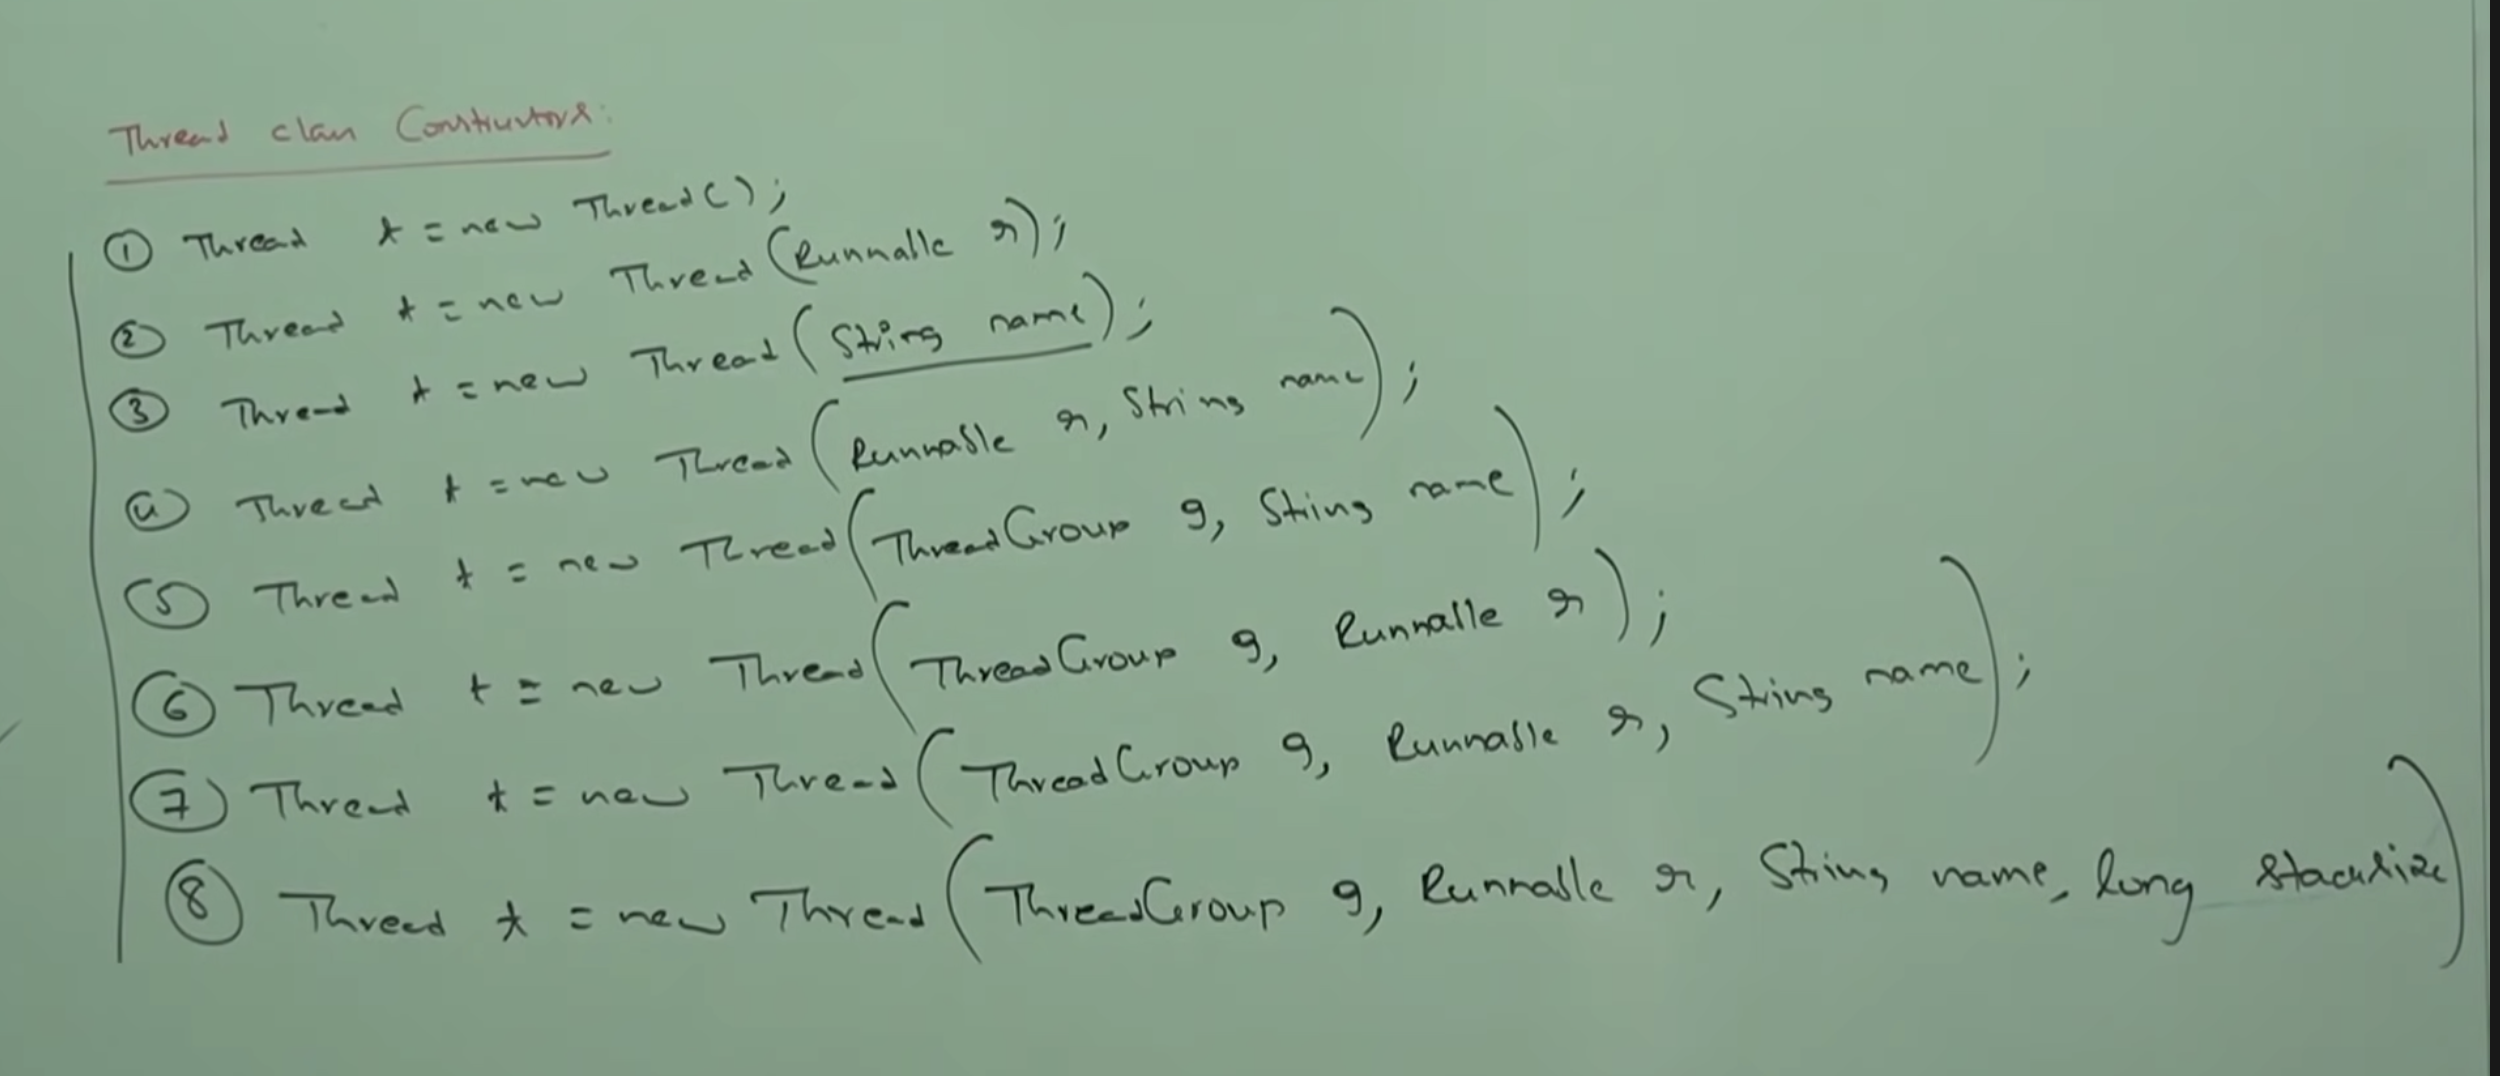 Thread class Constructors:
① Thread t = new Thread();
② Thread t = new Thread(Runnable r);
③ Thread t = new Thread(String name);
④ Thread t = new Thread(Runnable r, String name);
⑤ Thread t = new Thread(ThreadGroup g, String name);
⑥ Thread t = new Thread(ThreadGroup g, Runnable r);
⑦ Thread t = new Thread(ThreadGroup g, Runnable r, String name);
⑧ Thread t = new Thread(ThreadGroup g, Runnable r, String name, long stacksize)